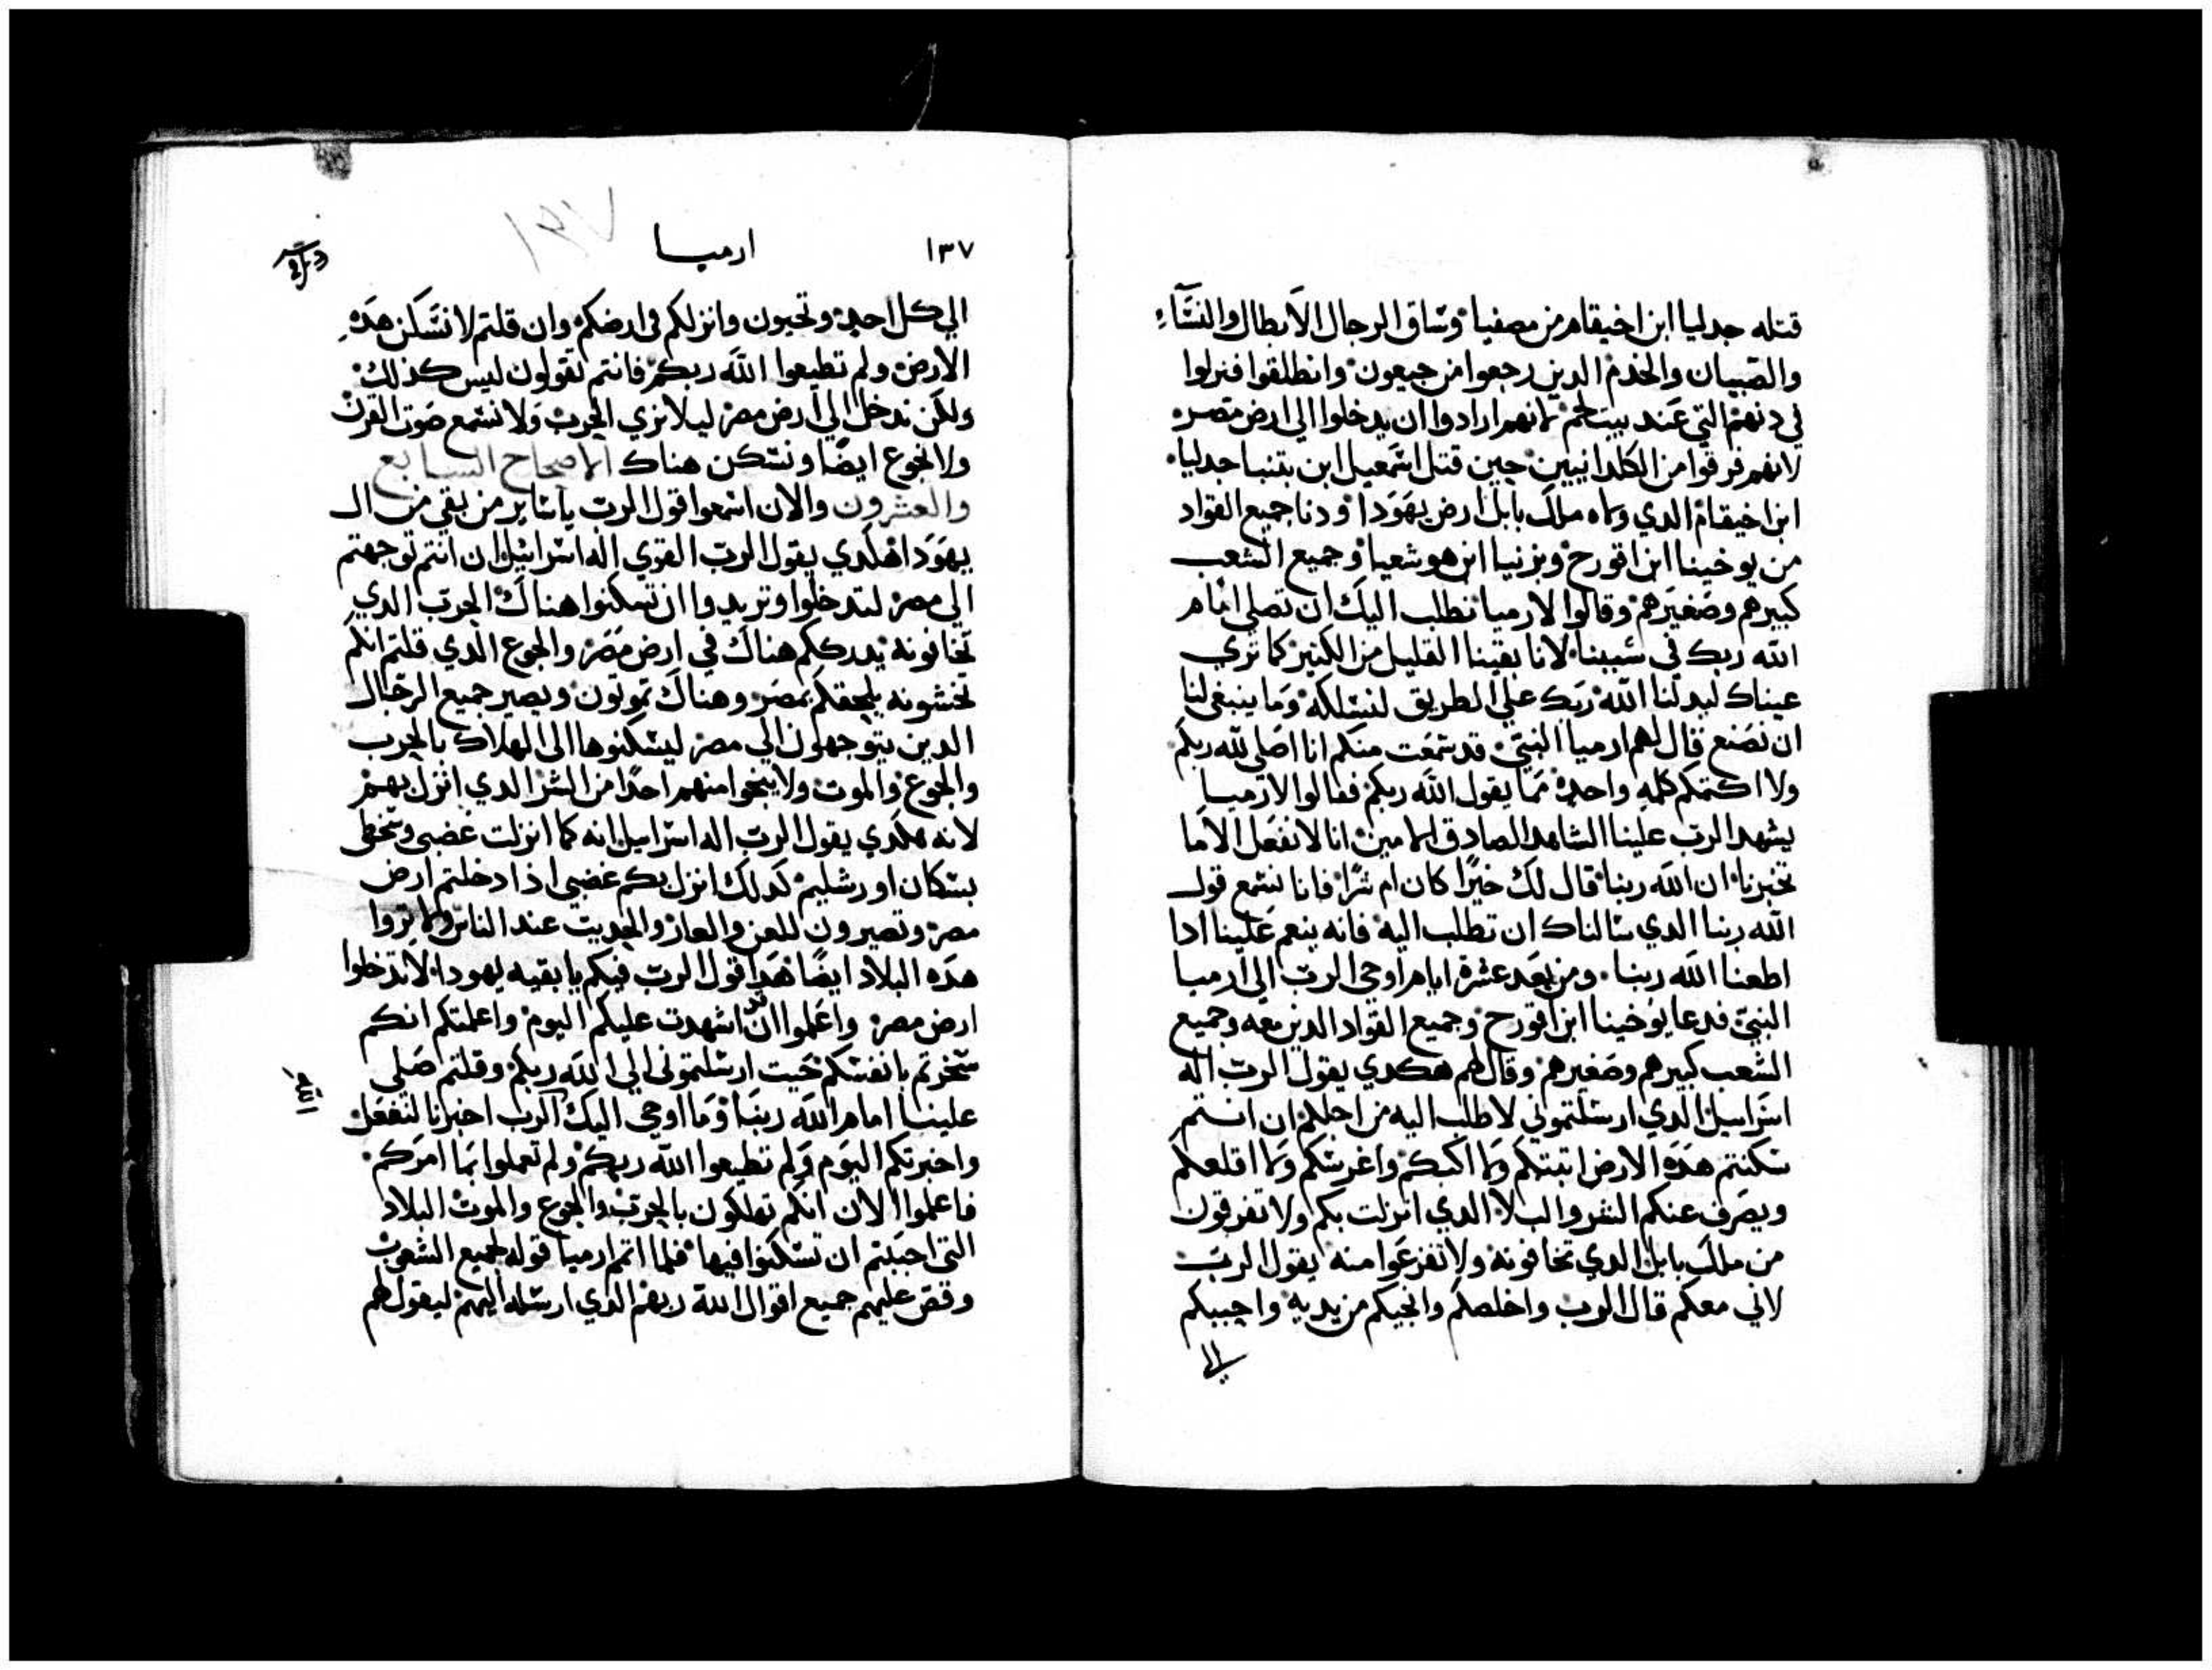 قتله جدليا ابن اخيقام من مصفيا وساق الرجال الابطال والنسآء
والصبيان والخدم الدين رجعوا من جبعون وانطلقوا فنزلوا
في دنهم التي عند بيت لحم لانهم ارادوا ان يدخلوا الى ارض مصر
لانهم فرقوا من الكلدانيين حين قتل اسمعيل ابن نتنيا جدليا
ابن اخيقام الدي ولاه ملك بابل ارض يهودا ودنا جميع القواد
من يوخينا ابن اقورح ويزنيا ابن هوشعيا وجميع الشعب
كبيرهم وصغيرهم وقالوا لارميا نطلب اليك ان تصلي امام
الله ربك في سببنا لانا بقينا القليل من الكثير كما تري
عيناك ليدلنا الله ربك علي الطريق لنسلكه وما ينبغي لنا
ان نصنع قال لهم ارميا النبي قد سمعت منكم انا اصلي لله ربكم
ولا اكتمكم كلمه واحده مما يقول الله ربكم فقالوا لارميا
يشهد الرب علينا الشاهد الصادق الامين انا لا نفعل الا ما
تخبرنا ان الله ربنا قال لك خيرا كان ام شرا فانا نسمع قول
الله ربنا الدي سالناك ان تطلب اليه فانه ينعم علينا ادا
اطعنا الله ربنا ومن بعد عشرة ايام اوحي الرب الي ارميا
النبي فدعا يوخينا ابن اقورح وجميع القواد الدين معه وجميع
الشعب كبيرهم وصغيرهم وقال لهم هكدي يقول الرب اله
اسراييل الدي ارسلتموني لاطلب اليه من اجلكم ان انتم
سكنتم هده الارض ابنتكم ولا اكبكم واغرسكم ولا اقلعكم
ويصرف عنكم الشر والبلا الدي انزلت بكم ولا تفرقون
من ملك بابل الدي تخافونه ولا تفزعوا منه يقول الرب
لاني معكم قال الرب واخلصكم وانجيكم من يديه واجيبكم
الي
١٣٧
ارميا
١٣٧
الي كل احد وتحيون وانزلكم في ارضكم وان قلتم لا نسكن هده
الارض ولم تطيعوا الله ربكم فانتم تقولون ليس كذلك
ولكن ندخل الي ارض مصر ليلا نري الحرب ولا نسمع صوت القرن
ولا نجوع ايضا ونسكن هناك الاصحاح السابع
والعشرون والان اسمعوا قول الرب يا ساير من بقي من ال
يهودا هكدي يقول الرب القوي اله اسراييل ان انتم توجهتم
الي مصر لتدخلوا وتريدوا ان تسكنوا هناك الحرب الدي
تخافونه يدرككم هناك في ارض مصر والجوع الدي قلتم انكم
تخشونه يلحقكم بمصر وهناك تموتون ويصير جميع الرجال
الدين يتوجهون الي مصر ليسكنوها الى الهلاك بالحرب
والجوع والموت ولا ينجوا منهم احدا من الشر الدي انزل بهم
لانه هكدي يقول الرب اله اسراييل انه كما انزلت غضبي وسخطي
بسكان اورشليم كدلك انزل بكم غضبي اذا دخلتم ارض
مصر وتصيرون للعن والعار والحديث عند الناس ولا تروا
هده البلاد ايضا هدا قول الرب فيكم يا بقيه يهودا لا تدخلوا
ارض مصر واعلموا ان اشهدت عليكم اليوم واعلمتكم انكم
سخرتم بانفسكم حيت ارسلتموني الي الله ربكم وقلتم صلي
علينا امام الله ربنا وما اوحي اليك الرب اخبرنا لنفعل
واخبرتكم اليوم ولم تطيعوا الله ربكم ولم تعملوا بما امركم
فاعلموا الان انكم تهلكون بالحرب والجوع والموت البلاد
التي احببتم ان تسكنوا فيها فلما اتم ارميا قوله لجميع الشعوب
وقص عليهم جميع اقوال الله ربهم الدي ارسله اليهم ليقول لهم